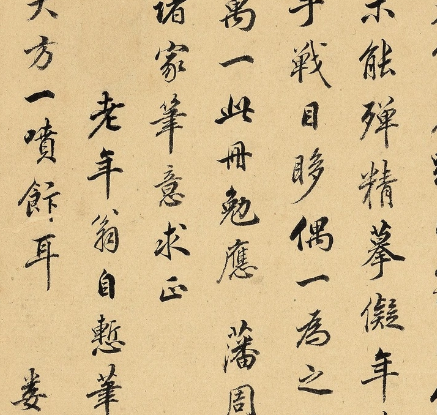 能殫精摹儗年
手戰目眵偶一為之
萬一此冊勉應 藩周
諸家筆意求正
老年翁自慙筆
大方一噴飯耳 婁